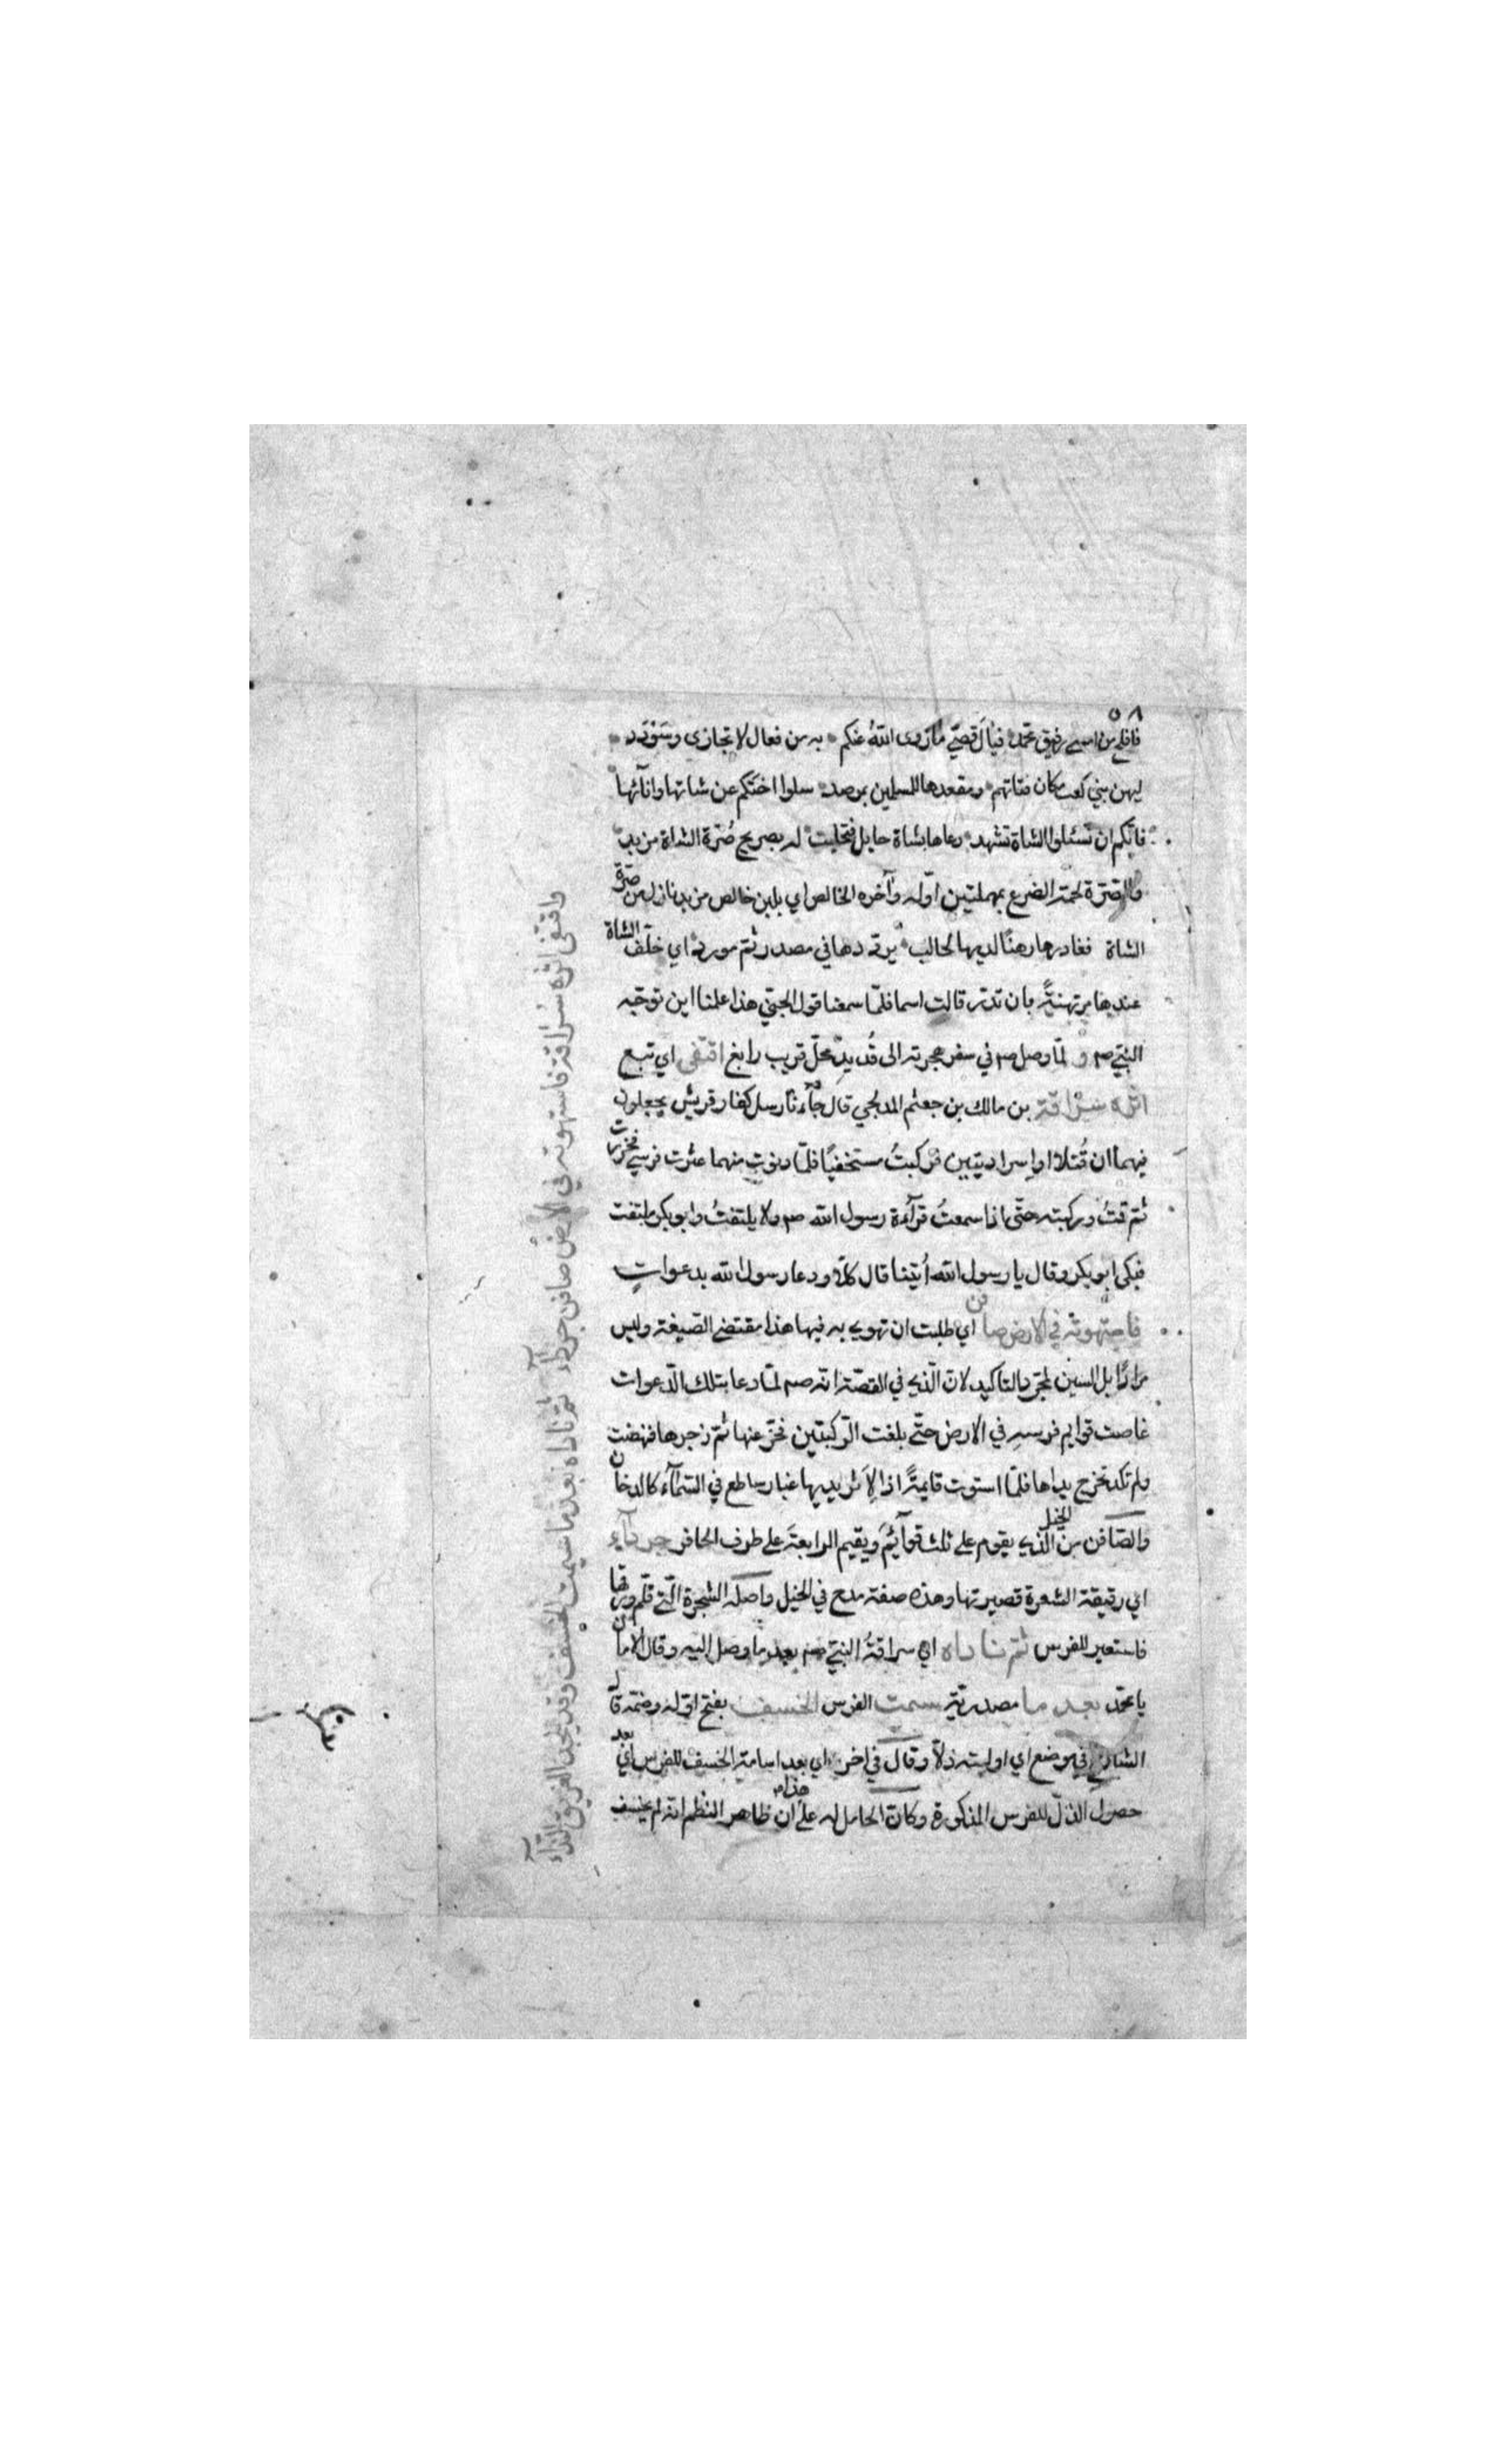 ٥٨
فافلح من امسى رفيق محمد فيال قصي ما زوى الله عنكم به من فعال لا تجازى وسؤدد
ليهن بني كعب مكان فتاتهم ومقعدها للمسلمين بمرصد سلوا اختكم عن شاتها وانآئها
فانكم ان تسئلوا الشاة تشهد دعاها بشاة حايل فتحلبت له بصريح ضرة الشاة مزبد
والضرة لحمة الضرع بمهملتين اوله وآخره الخالص اي بلبن خالص مزبد نازل من ضرة
الشاة فغادرها رهنا لديها لحالب يرددها في مصدر ثم مورد اي خلف الشاة
عندها مرتهنة بان تدر قالت اسما فلما سمعنا قول الجني هذا علمنا اين توجه
النبي صم و لما وصل صم في سفر هجرته الى قديد محل قريب رابغ اقتفى اي تبع
اثره سراقة بن مالك بن جعثم المدلجي قال جآءنا رسل كفار قريش يجعلون
فيهما ان قتلا او اسرا ديتين فركبت مستخفيا فلما دنوت منهما عثرت فرسي فخررت
ثم قمت وركبته حتى اذا سمعت قرآءة رسول الله صم ولا يلتفت وابو بكر ملتفت
فبكى ابو بكر وقال يا رسول الله أتينا قال كلا ودعا رسول الله بدعوات
فاستهوته في الارض صافن اي طلبت ان تهوي به فيها هذا مقتضى الصيغة وليس
مرادا بل السين لمجرد التاكيد لان الذي في القصة انه صم لما دعا بتلك الدعوات
غاصت قوايم فرسه في الارض حتى بلغت الركبتين فخر عنها ثم زجرها فنهضت
ولم تكد تخرج يداها فلما استوت قايمة اذا لاثر يديها غبار ساطع في السمآء كالدخان
والصافن من الخيل الذي يقوم على ثلث قوآئم ويقيم الرابعة على طرف الحافر جردآء
اي رقيقة الشعرة قصيرتها وهذه صفة مدح في الخيل واصله الشجرة التي قلم ورقها
فاستعير للفرس ثم ناداه اي سراقة النبي صم بعد ما وصل اليه وقال الامان
يا محمد بعد ما مصدرية سيمت الفرس الخسف بفتح اوله وضمه قال
الشارح في موضع اي اوليته ذلا وقال في اخر اي بعد اسامة الخسف للفرس اي بعد
حصول الذل للفرس المذكورة وكان الحامل له على هذا ان ظاهر النظم انه لم يخسف
واقتفى اثره سراقة فاستهوته في الارض صافن جردآء ثم ناداه بعد ما سيمت الخسف وقد ينجد الغريق الندآء